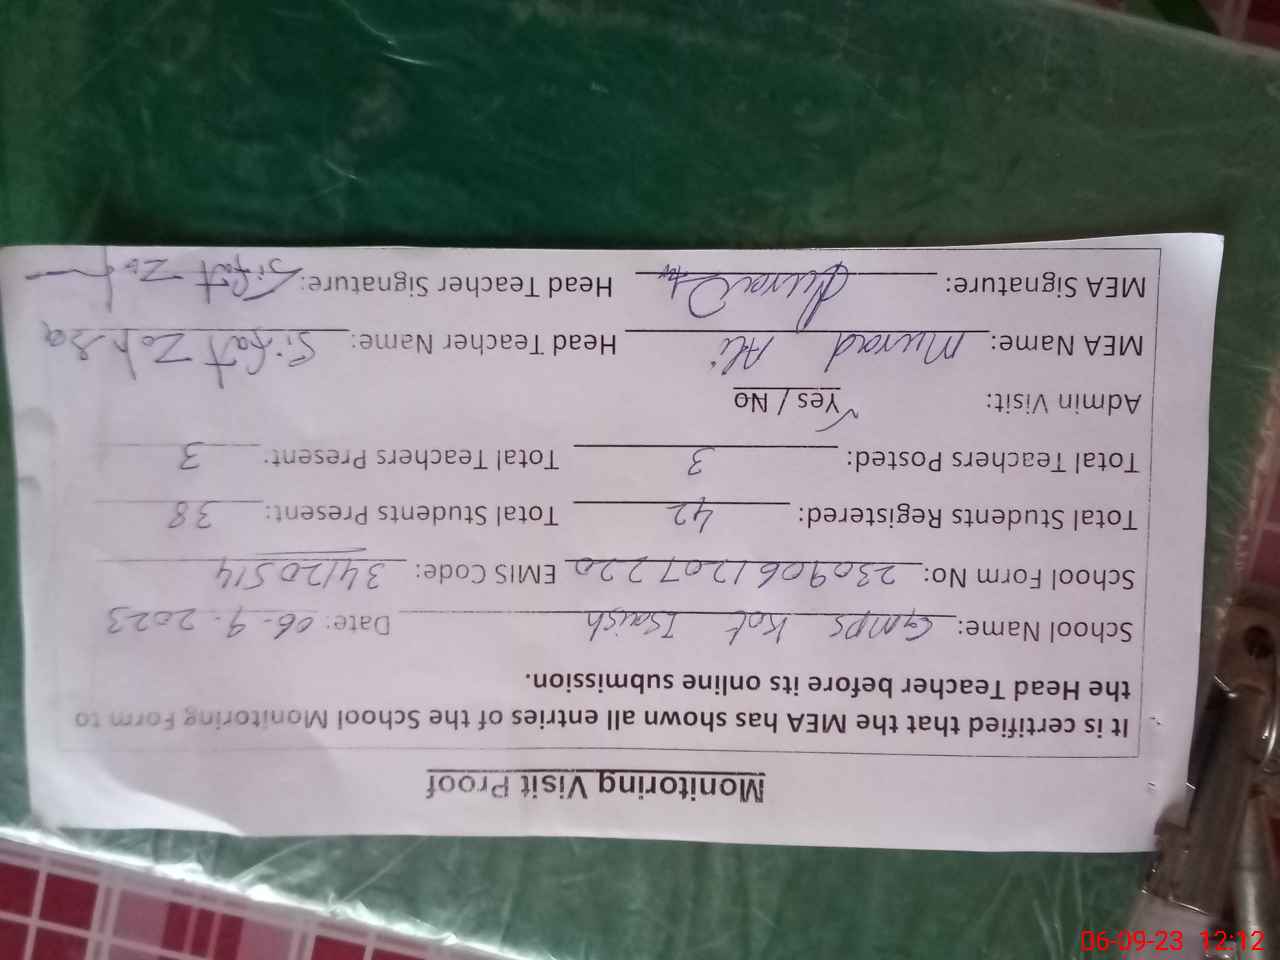 Monitoring Visit Proof
It is certified that the MEA has shown all entries of the School Monitoring Form to
the Head Teacher before its online submission.
School Name: Gmps Kot Isaish Date: 06-9-2023
School Form No: 2309061207220 EMIS Code: 34120514
Total Students Registered: 42 Total Students Present: 38
Total Teachers Posted: 3 Total Teachers Present: 3
Admin Visit: Yes / No
MEA Name: Murad Ali Head Teacher Name: Sifat Zahra
MEA Signature: Head Teacher Signature: Sifat Zah
06-09-23 12:12